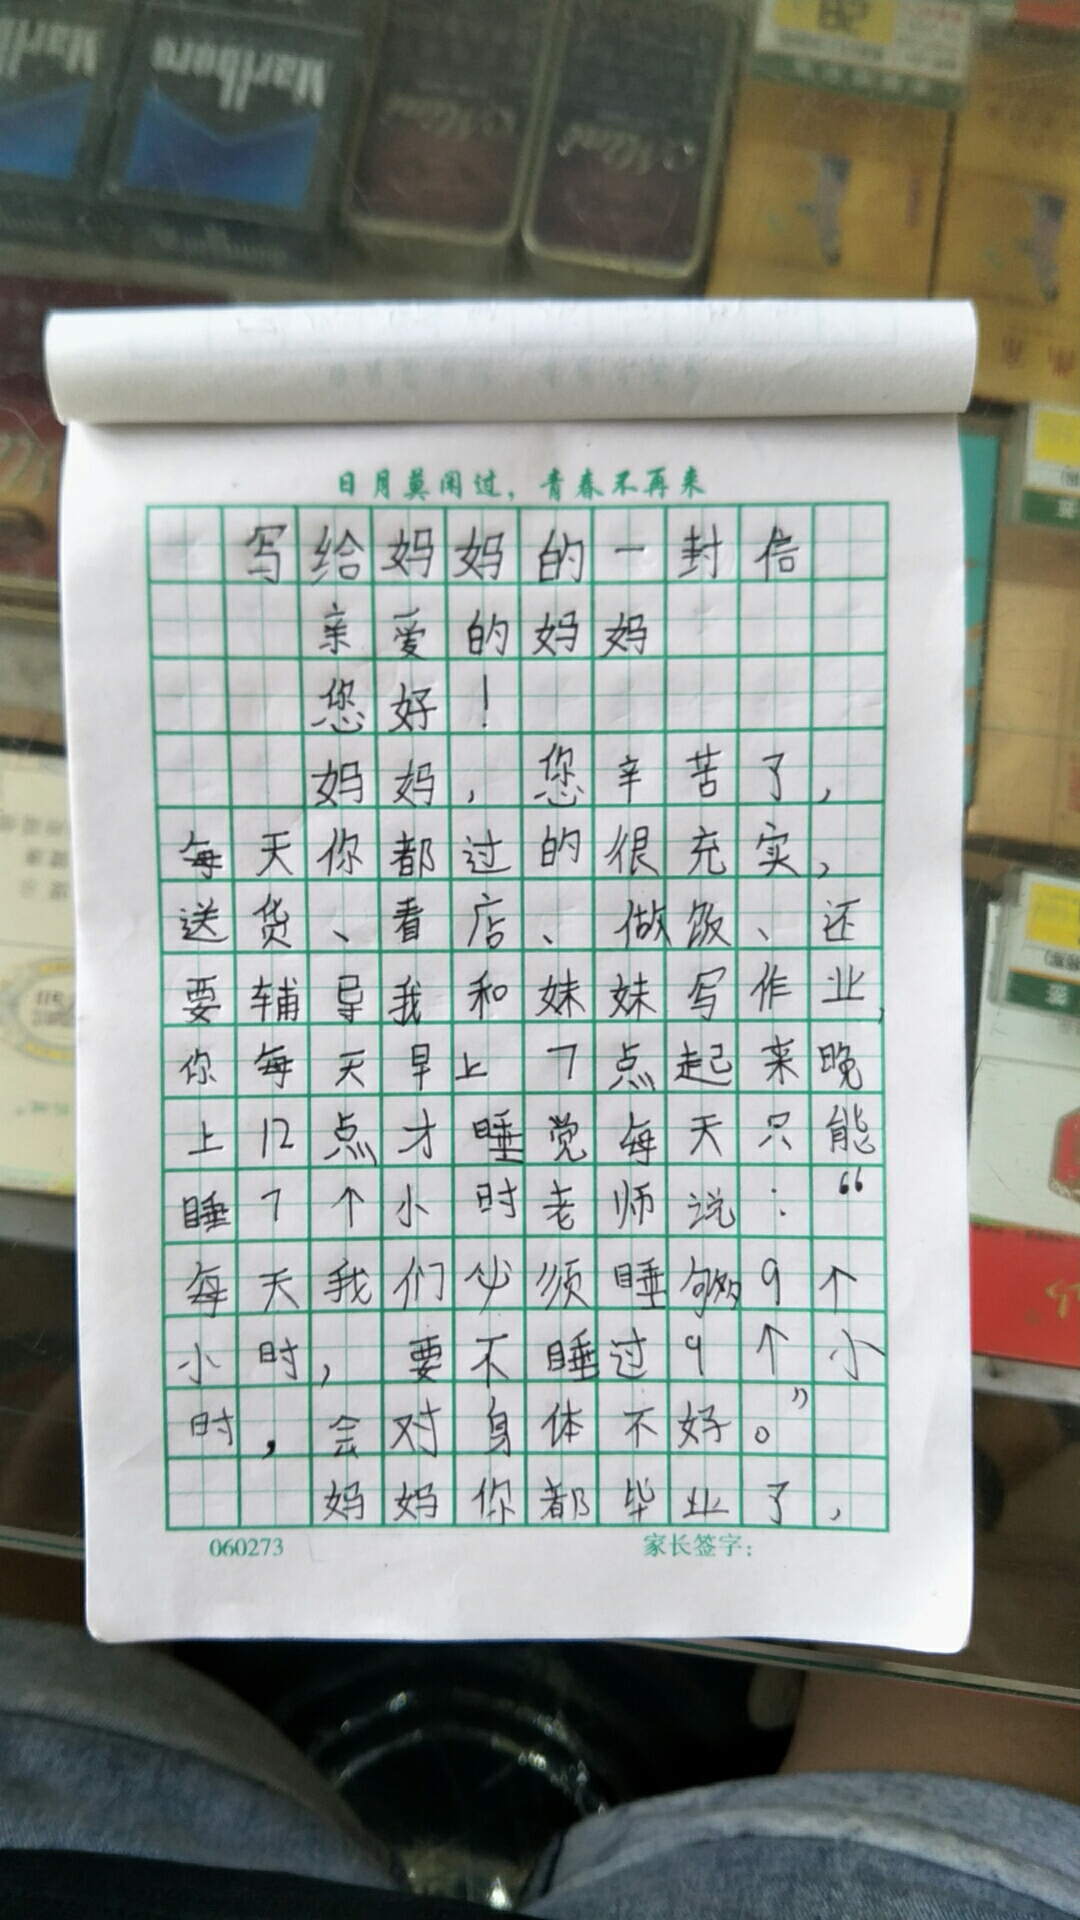 Marlboro
日月莫闲过，青春不再来
写给妈妈的一封信
亲爱的妈妈
您好！
妈妈，您辛苦了，
每天你都过的很充实，
送货、看店、做饭、还
要辅导我和妹妹写作业，
你每天早上7点起来晚
上12点才睡觉每天只能
睡7个小时老师说：“
每天我们必须睡够9个
小时，要不睡过9个小
时，会对身体不好。”
妈妈你都毕业了，
060273
家长签字：